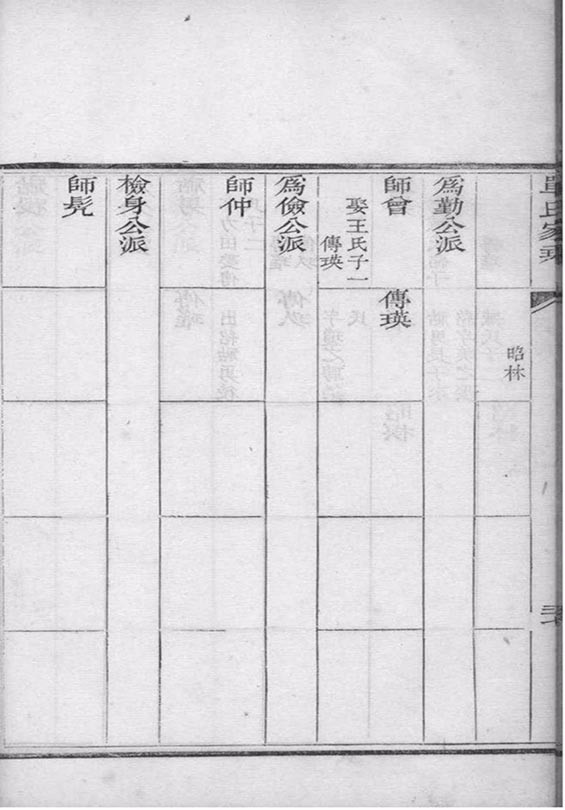 昭林
爲勤公派
師曾
娶王氏子一
傳瑛
傳瑛
爲儉公派
師仲
檢身公派
師髡